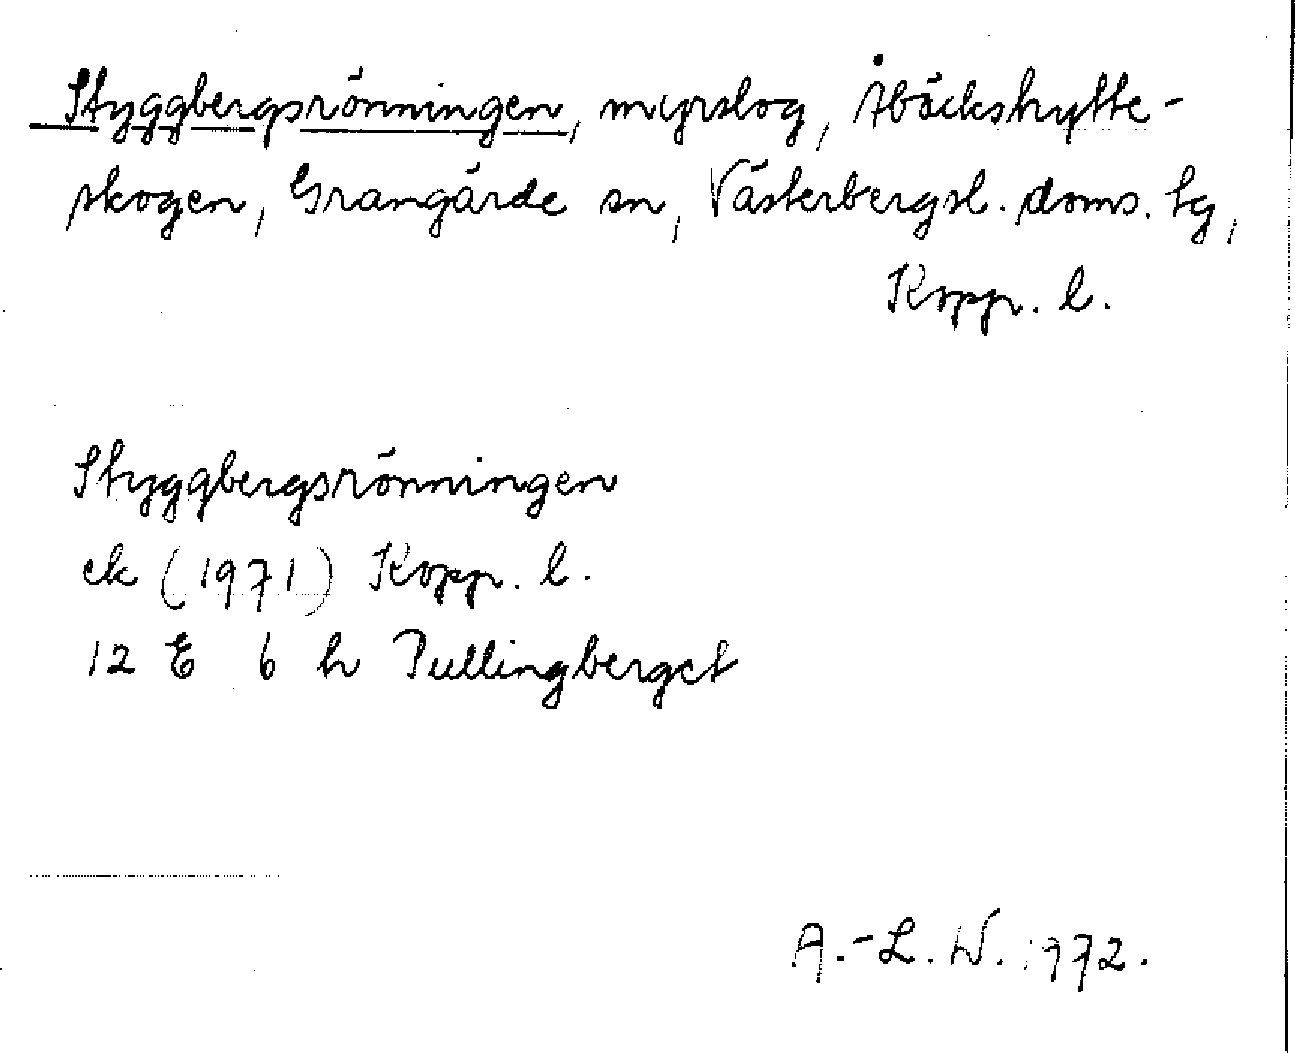 Styggbergsrönningen, myrslog, Abäckshytte-
skogen, Grangärde sn, Västerbergsl. doms. tg,
Kopp. l.
Styggbergsrönningen
ek (1971) Kopp. l.
12 E 6 h Pullingberget
A.-L. W. 1972.